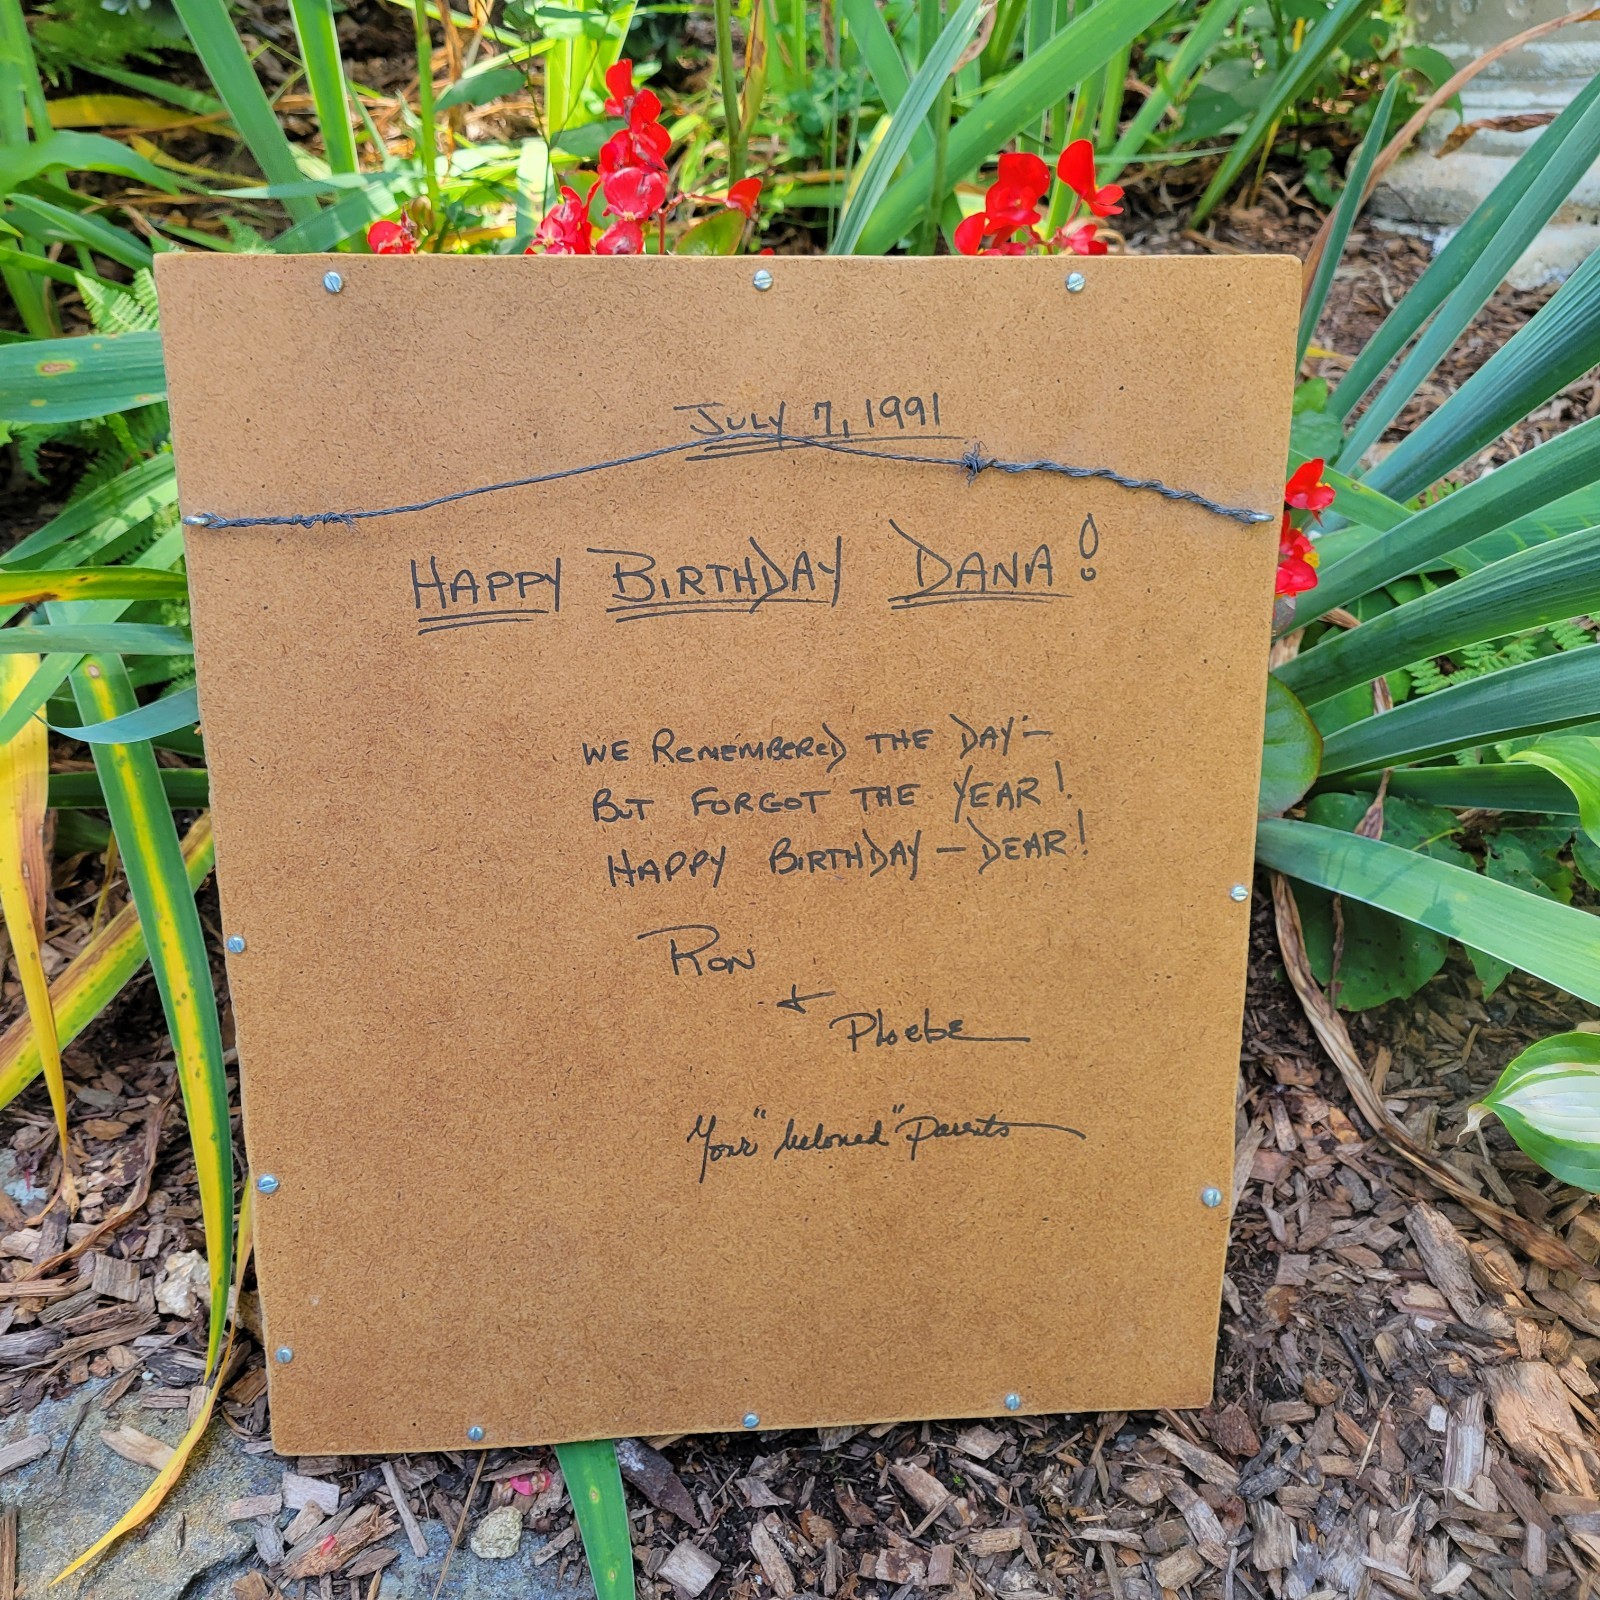 JULY 7, 1991
HAPPY BIRTHDAY DANA!
WE REMEMBERED THE DAY -
BUT FORGOT THE YEAR!
HAPPY BIRTHDAY - DEAR!
RON
+
Phoebe
Your "beloved" Parents